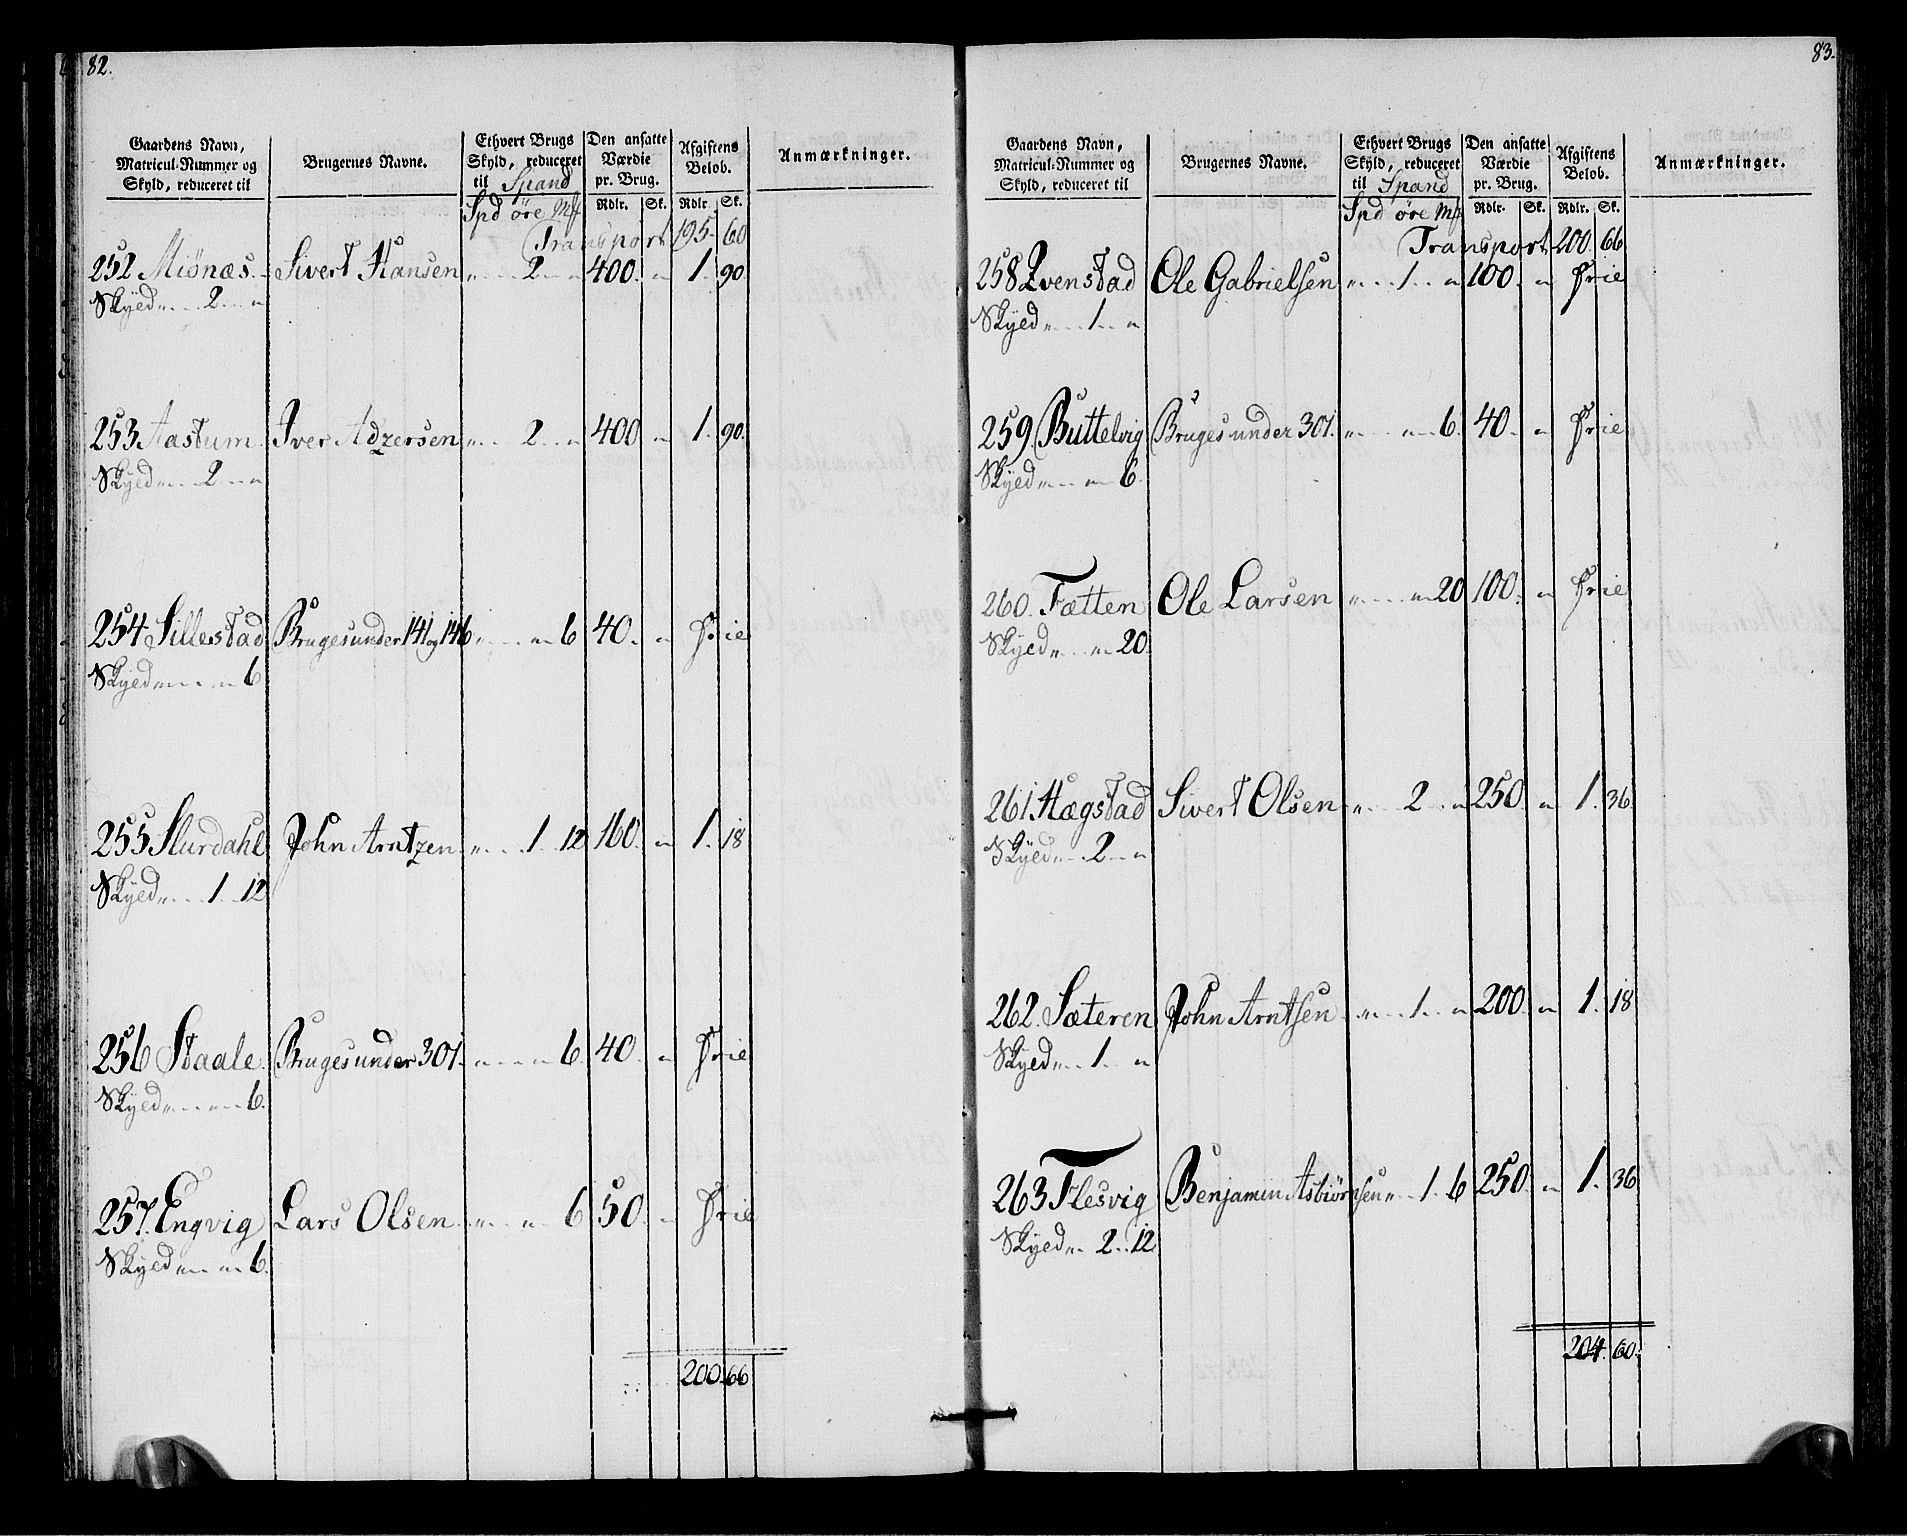 82.
Gaardens Navn, Matricul-Nummer og Skyld, reduceret til | Brugernes Navne. | Ethvert Brugs Skyld, reduceret til Spand | Den ansatte Værdie pr. Brug. | Afgiftens Beløb. | Anmærkninger.
Spd öre Mk | Rdlr. | Sk. | Rdlr. | Sk.
Transport 195. 60
252 Miönæs. Sivert Hansen „ 2 „ 400. „ 1. 90.
Skyld „ 2 „
253 Aastum. Iver Adzersen „ 2 „ 400 „ 1. 90.
Skyld „ 2 „
254 Sillestad Bruges under 141 og 146 „ „ 6 40. „ Frie
Skyld „ „ 6
255 Slurdahl John Arntzen „ 1 12 160. „ 1. 18
Skyld „ 1. 12
256 Staale. Bruges under 301. „ „ 6. 40. „ Frie
Skyld „ „ 6.
257. Engvig Lars Olsen „ „ 6 50. „ Frie
Skyld „ „ 6.
200. 66
83.
Gaardens Navn, Matricul-Nummer og Skyld, reduceret til | Brugernes Navne. | Ethvert Brugs Skyld, reduceret til Spand | Den ansatte Værdie pr. Brug. | Afgiftens Beløb. | Anmærkninger.
Spd öre Mk | Rdlr. | Sk. | Rdlr. | Sk.
Transport 200. 66
258 Qvenstad Ole Gabrielsen „ 1. „ 100. „ Frie
Skyld „ 1. „
259. Buttelvig Bruges under 301. „ „ 6. 40. „ Frie
Skyld „ „ 6.
260. Fætten Ole Larsen „ „ 20 100. „ Frie
Skyld „ „ 20.
261 Hægstad Sivert Olsen „ 2 „ 250. „ 1. 36.
Skyld „ 2 „
262. Sæteren John Arntsen „ 1. „ 200. „ 1. 18
Skyld „ 1. „
263 Flesvig Benjamin Asbiörnsen „ 1. 6 250. „ 1. 36
Skyld „ 2. 12.
204. 60.